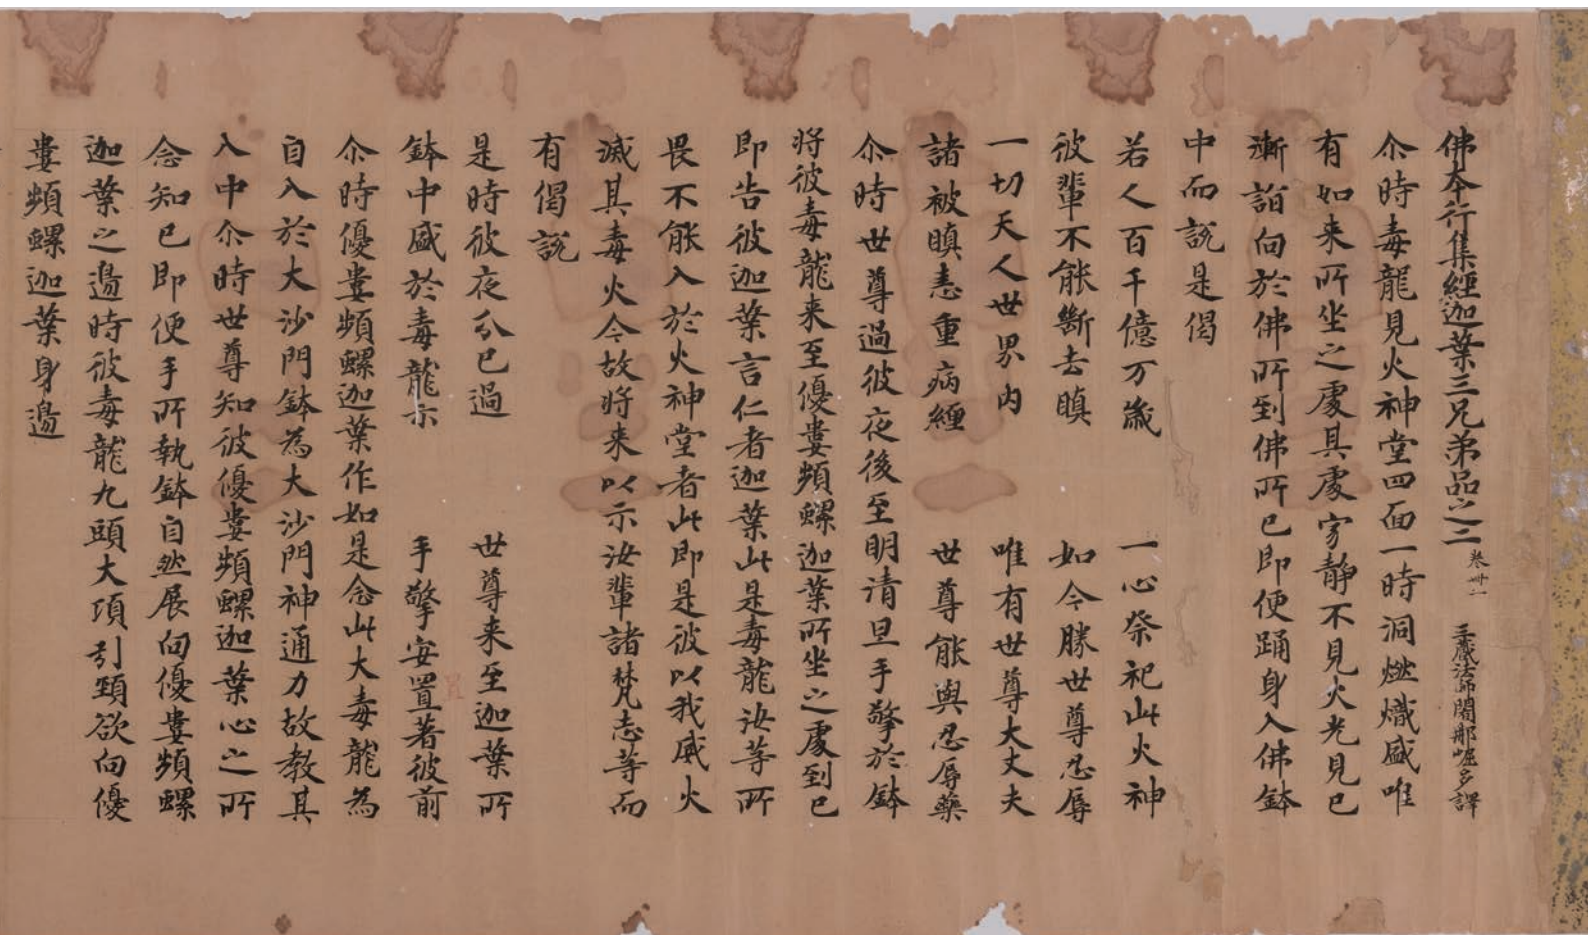 佛本行集經迦葉三兄弟品之二 卷卌二 三藏法師闍那崛多譯
尒時毒龍見火神堂四面一時洞燃熾盛唯
有如来所坐之處其處家静不見火光見已
漸詣向於佛所到佛所已即便踊身入佛鉢
中而説是偈
若人百千億万歲 一心祭祀此火神
彼輩不能斷去瞋 如今勝世尊忍辱
一切天人世界内 唯有世尊大丈夫
諸被瞋恚重病纏 世尊能與忍辱藥
尒時世尊過彼夜後至明清旦手擎於鉢
将彼毒龍来至優婁頻螺迦葉所坐之處到已
即告彼迦葉言仁者迦葉此是毒龍汝等所
畏不能入於火神堂者此即是彼以我威火
滅其毒火今故将来以示汝輩諸梵志等而
有偈説
是時彼夜分已過 世尊来至迦葉所
鉢中盛於毒龍示 手擎安置著彼前
尒時優婁頻螺迦葉作如是念此大毒龍為
自入於大沙門鉢為大沙門神通力故教其
入中尒時世尊知彼優婁頻螺迦葉心之所
念知已即便手所執鉢自然展向優婁頻螺
迦葉之邊時彼毒龍九頭大項引頸欲向優
婁頻螺迦葉身邊